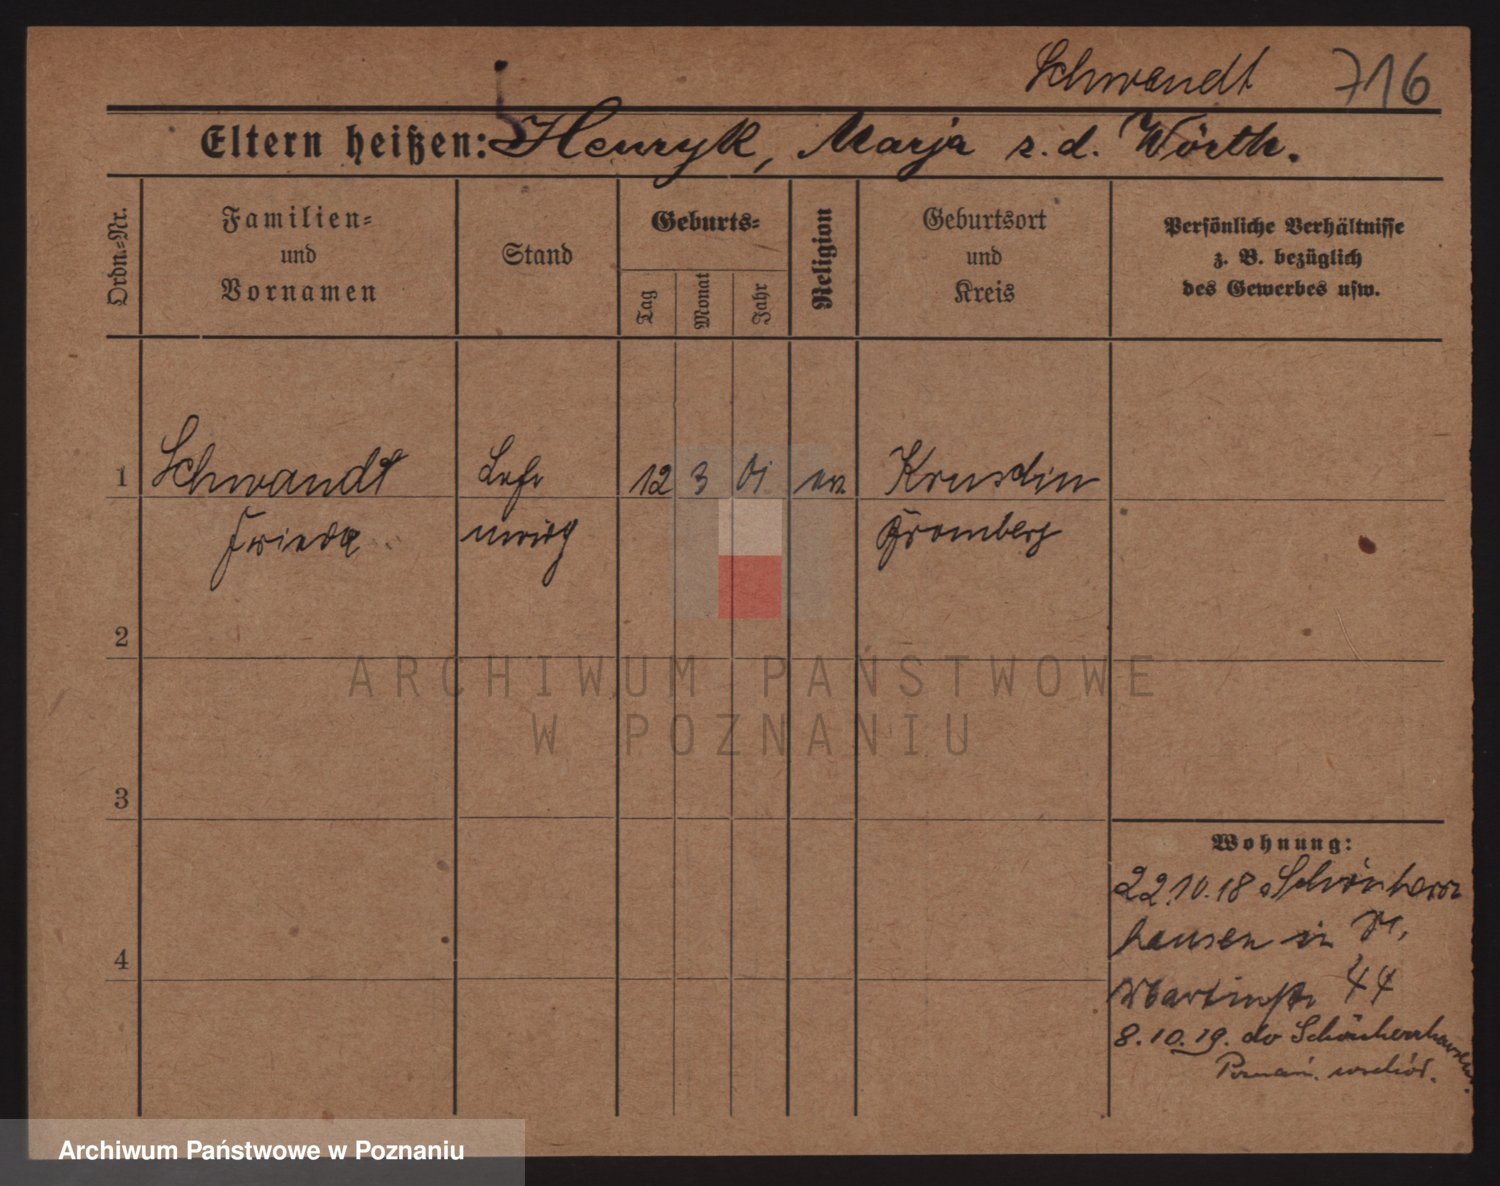 Schwandt 716
Eltern heißen: Henryk, Marja z. d. Wörth.
Ordn.=Nr.
Familien=
und
Vornamen
Stand
Geburts=
Tag
Monat
Jahr
Religion
Geburtsort
und
Kreis
Persönliche Verhältnisse
z. B. bezüglich
des Gewerbes usw.
1 Schwandt 12 3 01 ev.
Frieda
Bromberg
2
3
4
Wohnung:
22.10.18 Schönherr
hausen in
Martinstr 44
8.10.19. do Schönherrhausen
Poznań. wschód.
ARCHIWUM PAŃSTWOWE
W POZNANIU
Archiwum Państwowe w Poznaniu